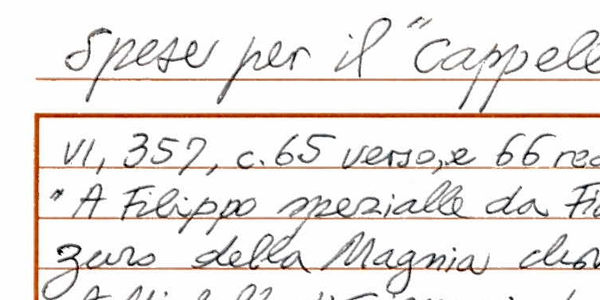 Spese per il "Cappell
VI, 357, c. 65 verso, e 66 rec
"A Filippo spezialle da Fi
zuro della Magnia